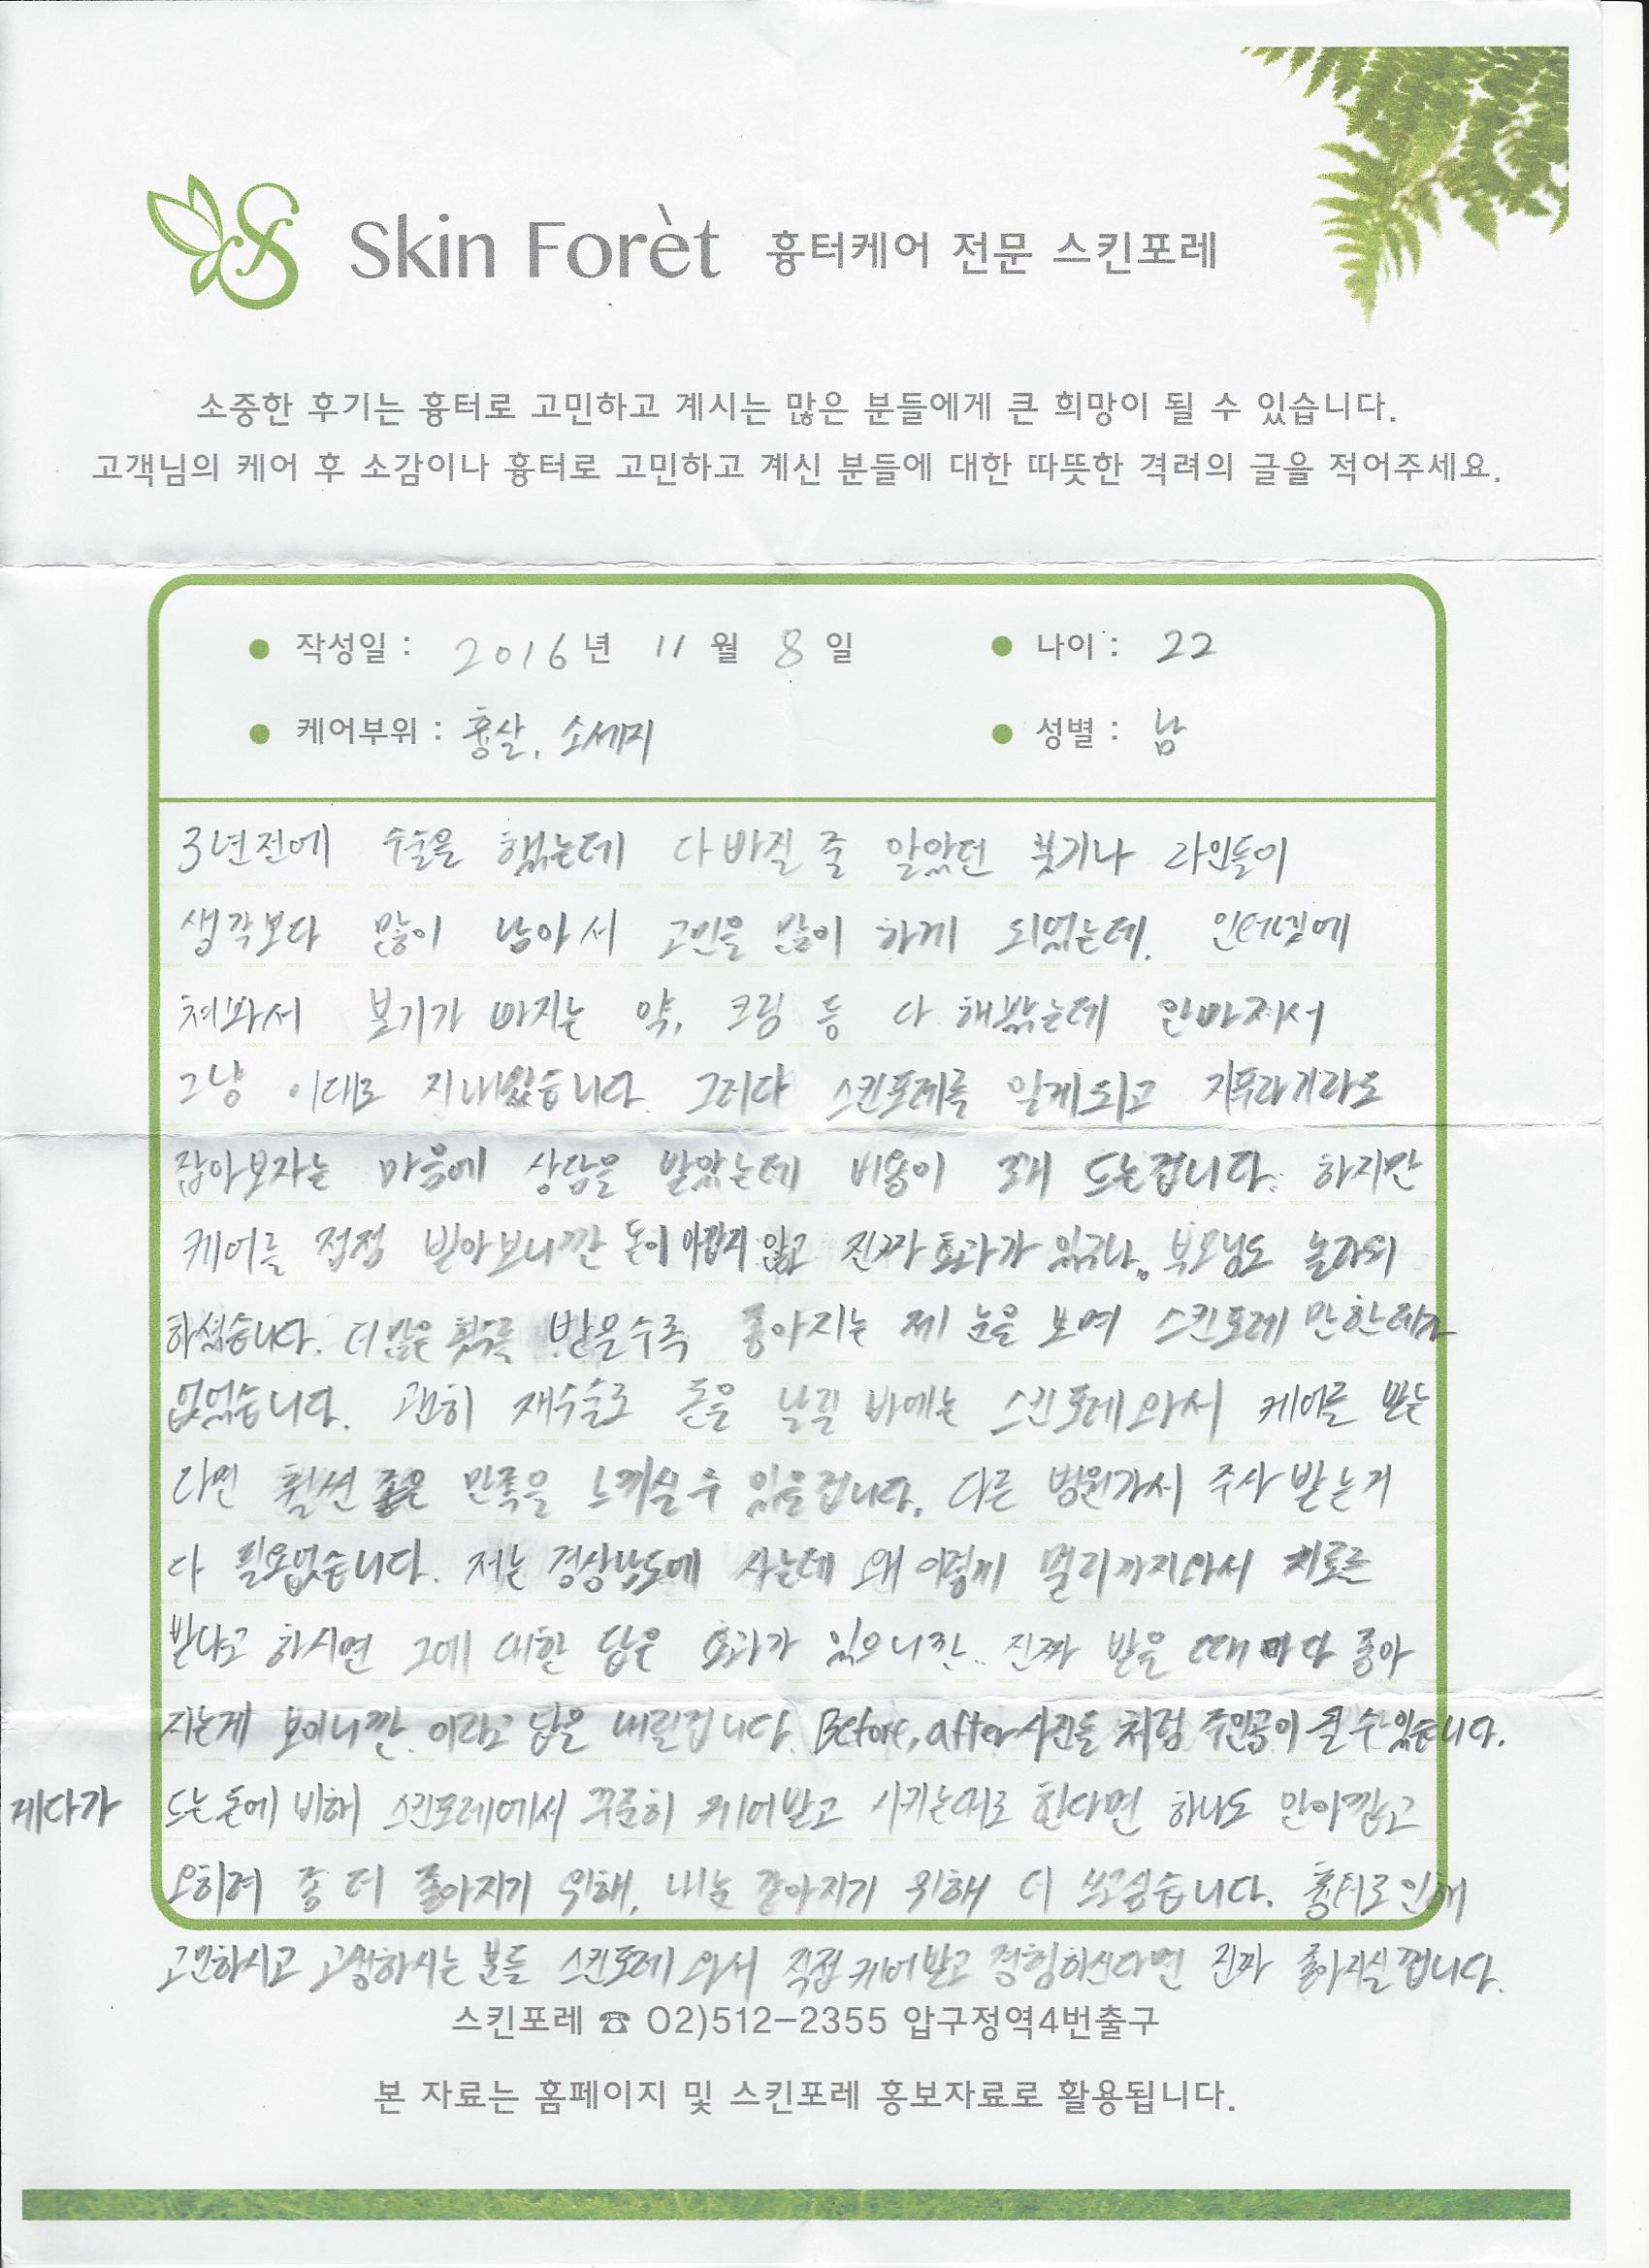 Skin Forèt 흉터케어 전문 스킨포레
소중한 후기는 흉터로 고민하고 계시는 많은 분들에게 큰 희망이 될 수 있습니다.
고객님의 케어 후 소감이나 흉터로 고민하고 계신 분들에 대한 따뜻한 격려의 글을 적어주세요.
● 작성일 : 2016년 11월 8일 ● 나이 : 22
● 케어부위 : 흉살, 소세지 ● 성별 : 남
3년전에 수술을 했는데 다 빠질 줄 알았던 붓기나 라인들이
생각보다 많이 남아서 고민을 많이 하게 되었는데. 인터넷에
쳐봐서 붇기가 빠지는 약, 크림 등 다 해봤는데 안빠져서
그냥 이대로 지내었습니다. 그러다 스킨포레를 알게되고 지푸라기라도
잡아보자는 마음에 상담을 받았는데 비용이 꽤 드는겁니다. 하지만
케어를 접접 받아보니깐 돈이 아깝지 않고 진짜 효과가 있구나. 부모님도 놀라워
하셨습니다. 더 많은 횟수를 받을수록 좋아지는 제 눈을 보며 스킨포레 만한데가
없었습니다. 괜히 재수술로 돈을 날릴 바에는 스킨포레와서 케어를 받는
다면 훨씬 좋은 만족을 느끼실 수 있을겁니다. 다른 병원가서 주사 받는거
다 필요없습니다. 저는 경상남도에 사는데 왜 이렇게 멀리까지와서 치료를
받냐고 하시면 그에 대한 답은 효과가 있으니깐.. 진짜 받을 때마다 좋아
지는게 보이니깐. 이라고 답을 내릴겁니다. Before, after 사진들 처럼 주인공이 될 수 있습니다.
게다가 드는돈에 비해 스킨포레에서 꾸준히 케어받고 시키는대로 한다면 하나도 안아깝고
오히려 좀 더 좋아지기 위해, 내눈 같아지기 위해 더 쓰고싶습니다. 흉터로 인해
고민하시고 고생하시는 분들 스킨포레 와서 직접 케어받고 경험하신다면 진짜 좋아지실겁니다.
스킨포레 ☎ 02)512-2355 압구정역4번출구
본 자료는 홈페이지 및 스킨포레 홍보자료로 활용됩니다.